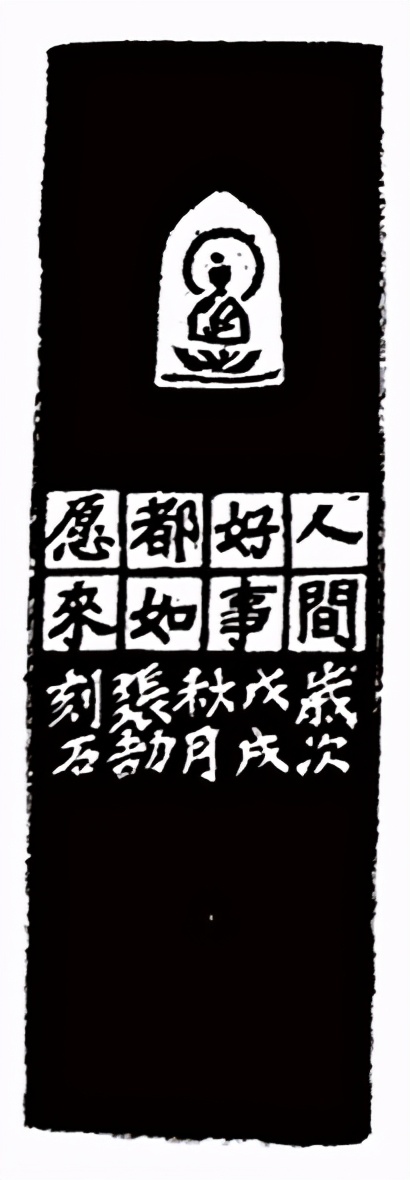 人間
好事
都如
愿來
歲次
戊戌
秋月
張劼
刻石